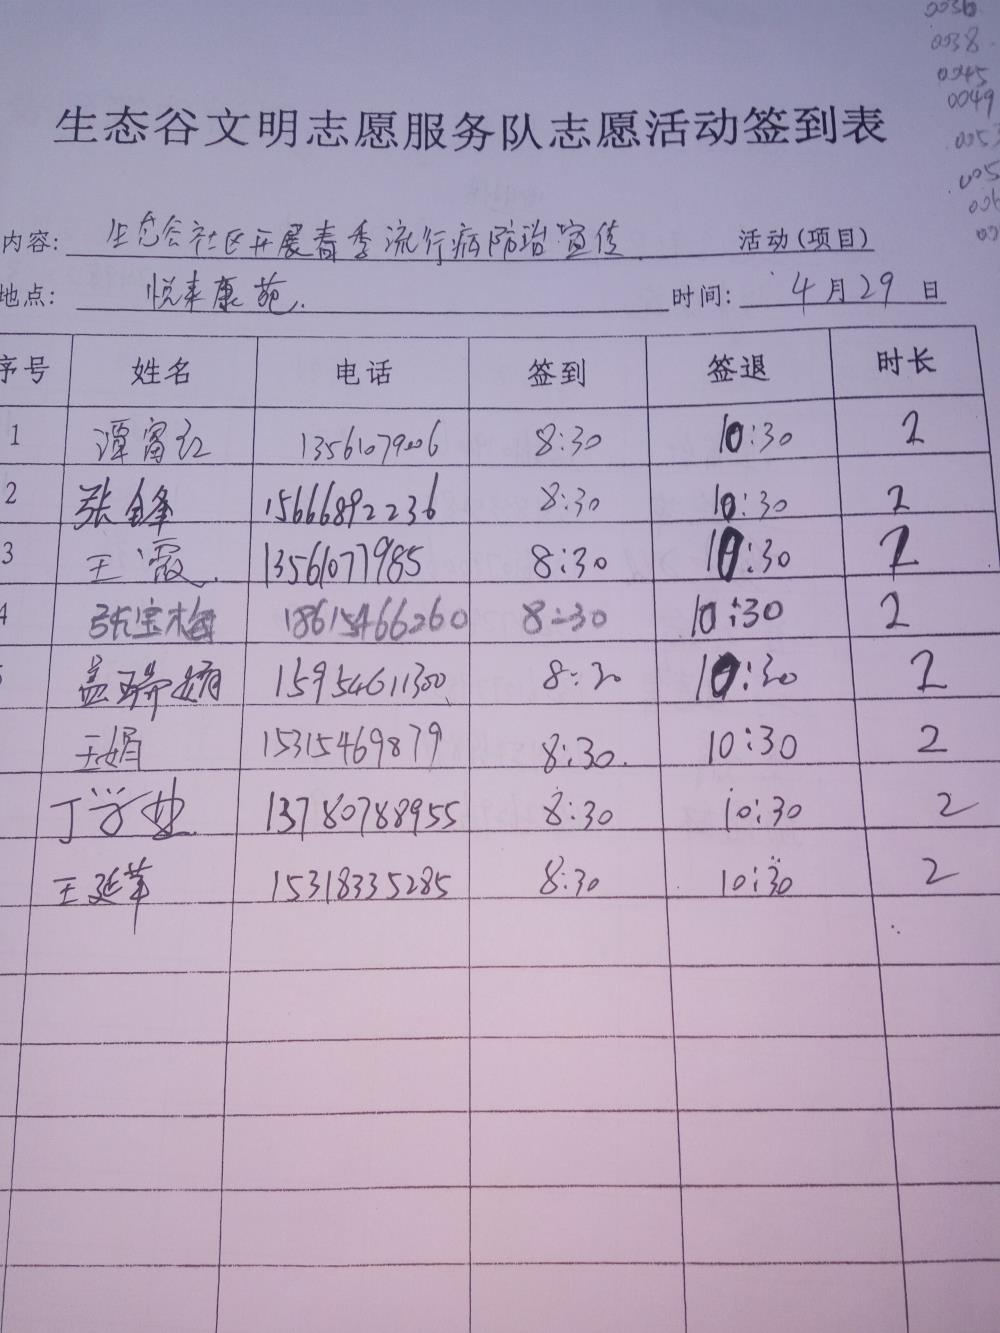 0036
0038
0045
0049
生态谷文明志愿服务队志愿活动签到表
内容: 生态谷社区开展春季流行病防治宣传 活动(项目)
地点: 悦来康苑. 时间: 4月29日
序号 姓名 电话 签到 签退 时长
1 谭富红 13561079006 8:30 10:30 2
2 张锋 15666892236 8:30 10:30 2
3 王霞. 13561077985 8:30 10:30 2
4 张宝梅 18615466260 8:30 10:30 2
盖瑞娟 15954611300 8:30 10:30 2
王娟 15315469879 8:30. 10:30 2
丁学忠 13780788955 8:30 10:30 2
王延华 15318335285 8:30 10:30 2